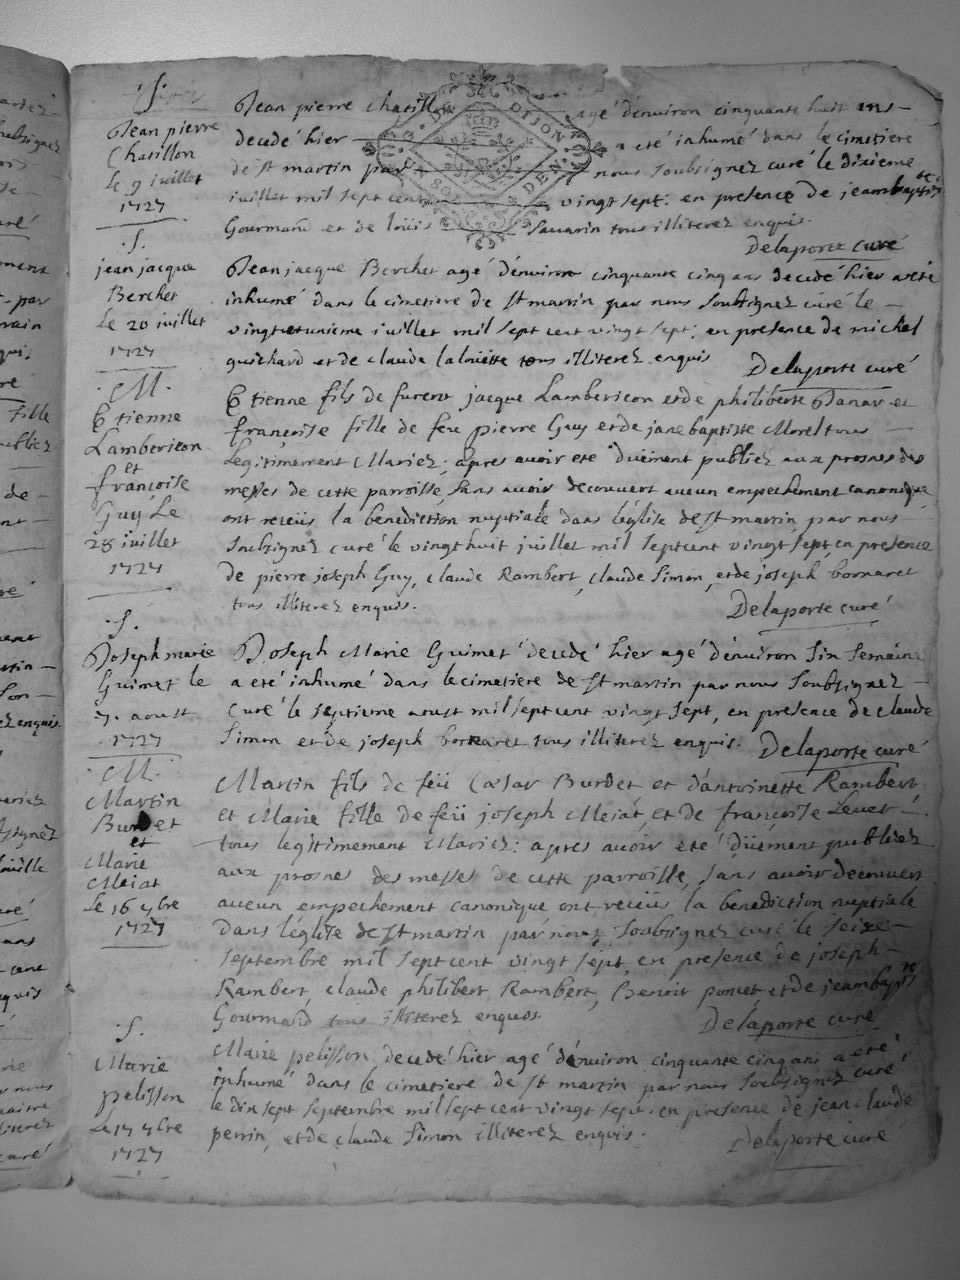 .S.
Jean pierre
Chatillon
le 9 juillet
1727
Jean pierre chatillon agé d'environ cinquante huit ans
decedé hier a eté inhumé dans le cimetiere
de st martin par nous soubsignez curé le dixieme
juillet mil sept cent vingt sept: en presence de jeambaptte
Gourmand et de loüis Sauarin tous illiterez enquis.
Delaporte curé
DIJON
.S.
jean jacque
Berchet
le 20 juillet
1727
Jean jacque Berchet agé d'environ cinquante cinq ans decedé hier a eté
inhumé dans le cimetiere de st martin par nous soubsignez curé le
vingt et unieme juillet mil sept cent vingt sept: en presence de michel
guichard et de claude laloüette tous illiterez enquis
Delaporte curé
.M.
Etienne
Lambericon
et
françoise
Guy Le
28 juillet
1727
Etienne fils de jacque Lambericon et de philiberte et
françoise fille de feu pierre Guy et de jane baptiste Morel tous
legitimement Mariez; apres avoir eté düement publiez aux prosnes des
messes de cette parroisse, sans avoir decouvert aucun empechement canonique
ont receüs la benediction nuptiale dans l'église de st martin par nous
soubsignez curé le vingt huit juillet mil sept cent vingt sept en presence
de pierre joseph Guy, claude Rambert, claude Simon, et de joseph bornaret
tous illiterez enquis.
Delaporte curé
.S.
Joseph marie
Guimet le
7. aoust
1727
Joseph Marie Guimet decedé hier agé d'environ Six Semaine
a eté inhumé dans le cimetiere de st martin par nous soubsignez
curé le septieme aoust mil sept cent vingt sept, en presence de claude
Simon et de joseph bornaret tous illiterez enquis.
Delaporte curé
.M.
Martin
Burdet
et
Marie
Meiat
Le 16 7bre
1727
Martin fils de feü Cæsar Burdet et d'antoinette Rambert
et Marie fille de feü joseph Meiat, et de françoise
tous legitimement Mariez: apres avoir eté düement publiez
aux prosnes des messes de cette parroisse, sans avoir decouvert
aucun empechement canonique ont receüs la benediction nuptiale
dans l'église de st martin par nous soubsignez curé le seize
septembre mil sept cent vingt sept, en presence de joseph
Rambert, claude philibert Rambert, Benoit poncet et de jeambaptte
Gourmand tous illiterez enquos
Delaporte curé
.S.
Marie
pelisson
Le 17 7bre
1727
Marie pelisson, decedé hier agé d'environ cinquante cinq ans a eté
inhumé dans le cimetiere de st martin par nous soubsignez curé
le dix sept septembre mil sept cent vingt sept: en presence de jean claude
perrin, et de claude Simon illiterez enquis.
Delaporte curé